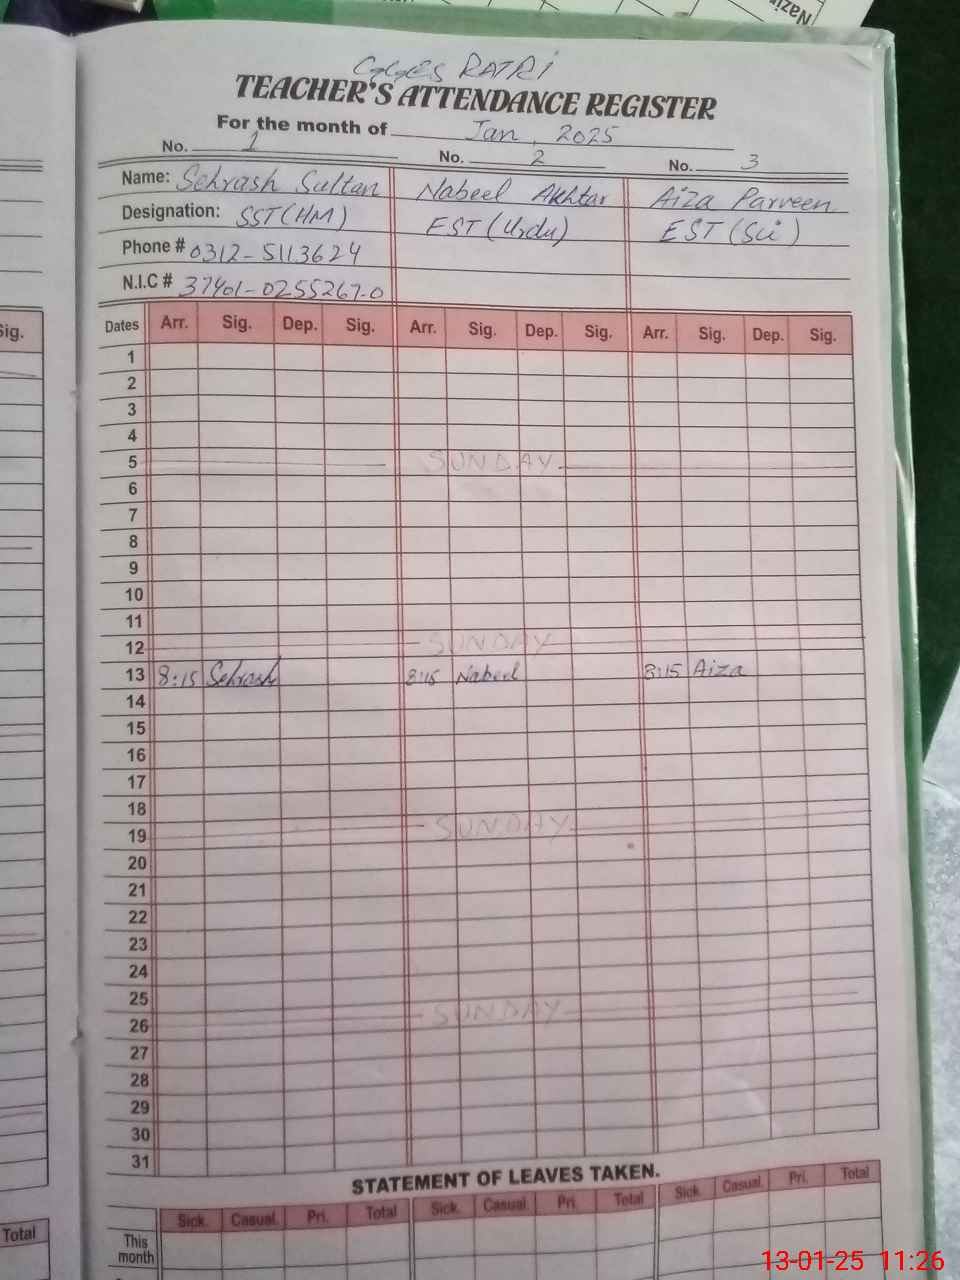 Nazir
GGES RATRI
TEACHER'S ATTENDANCE REGISTER
For the month of Jan, 2025
No. 1 No. 2 No. 3
Name: Sehrash Sultan Nabeel Akhtar Aiza Parveen
Designation: SST(HM) EST(Urdu) EST(Sci)
Phone # 0312-5113624
N.I.C # 37401-0255267-0
Sig.
Dates Arr. Sig. Dep. Sig. Arr. Sig. Dep. Sig. Arr. Sig. Dep. Sig.
1
2
3
4
5 SUNDAY
6
7
8
9
10
11
12 SUNDAY
13 8:15 Sehrash 8:15 Nabeel 8:15 Aiza
14
15
16
17
18
19 SUNDAY
20
21
22
23
24
25
26 SUNDAY
27
28
29
30
31
STATEMENT OF LEAVES TAKEN.
Total
Sick. Casual. Pri. Total Sick. Casual. Pri. Total Sick. Casual. Pri. Total
This
month
13-01-25 11:26